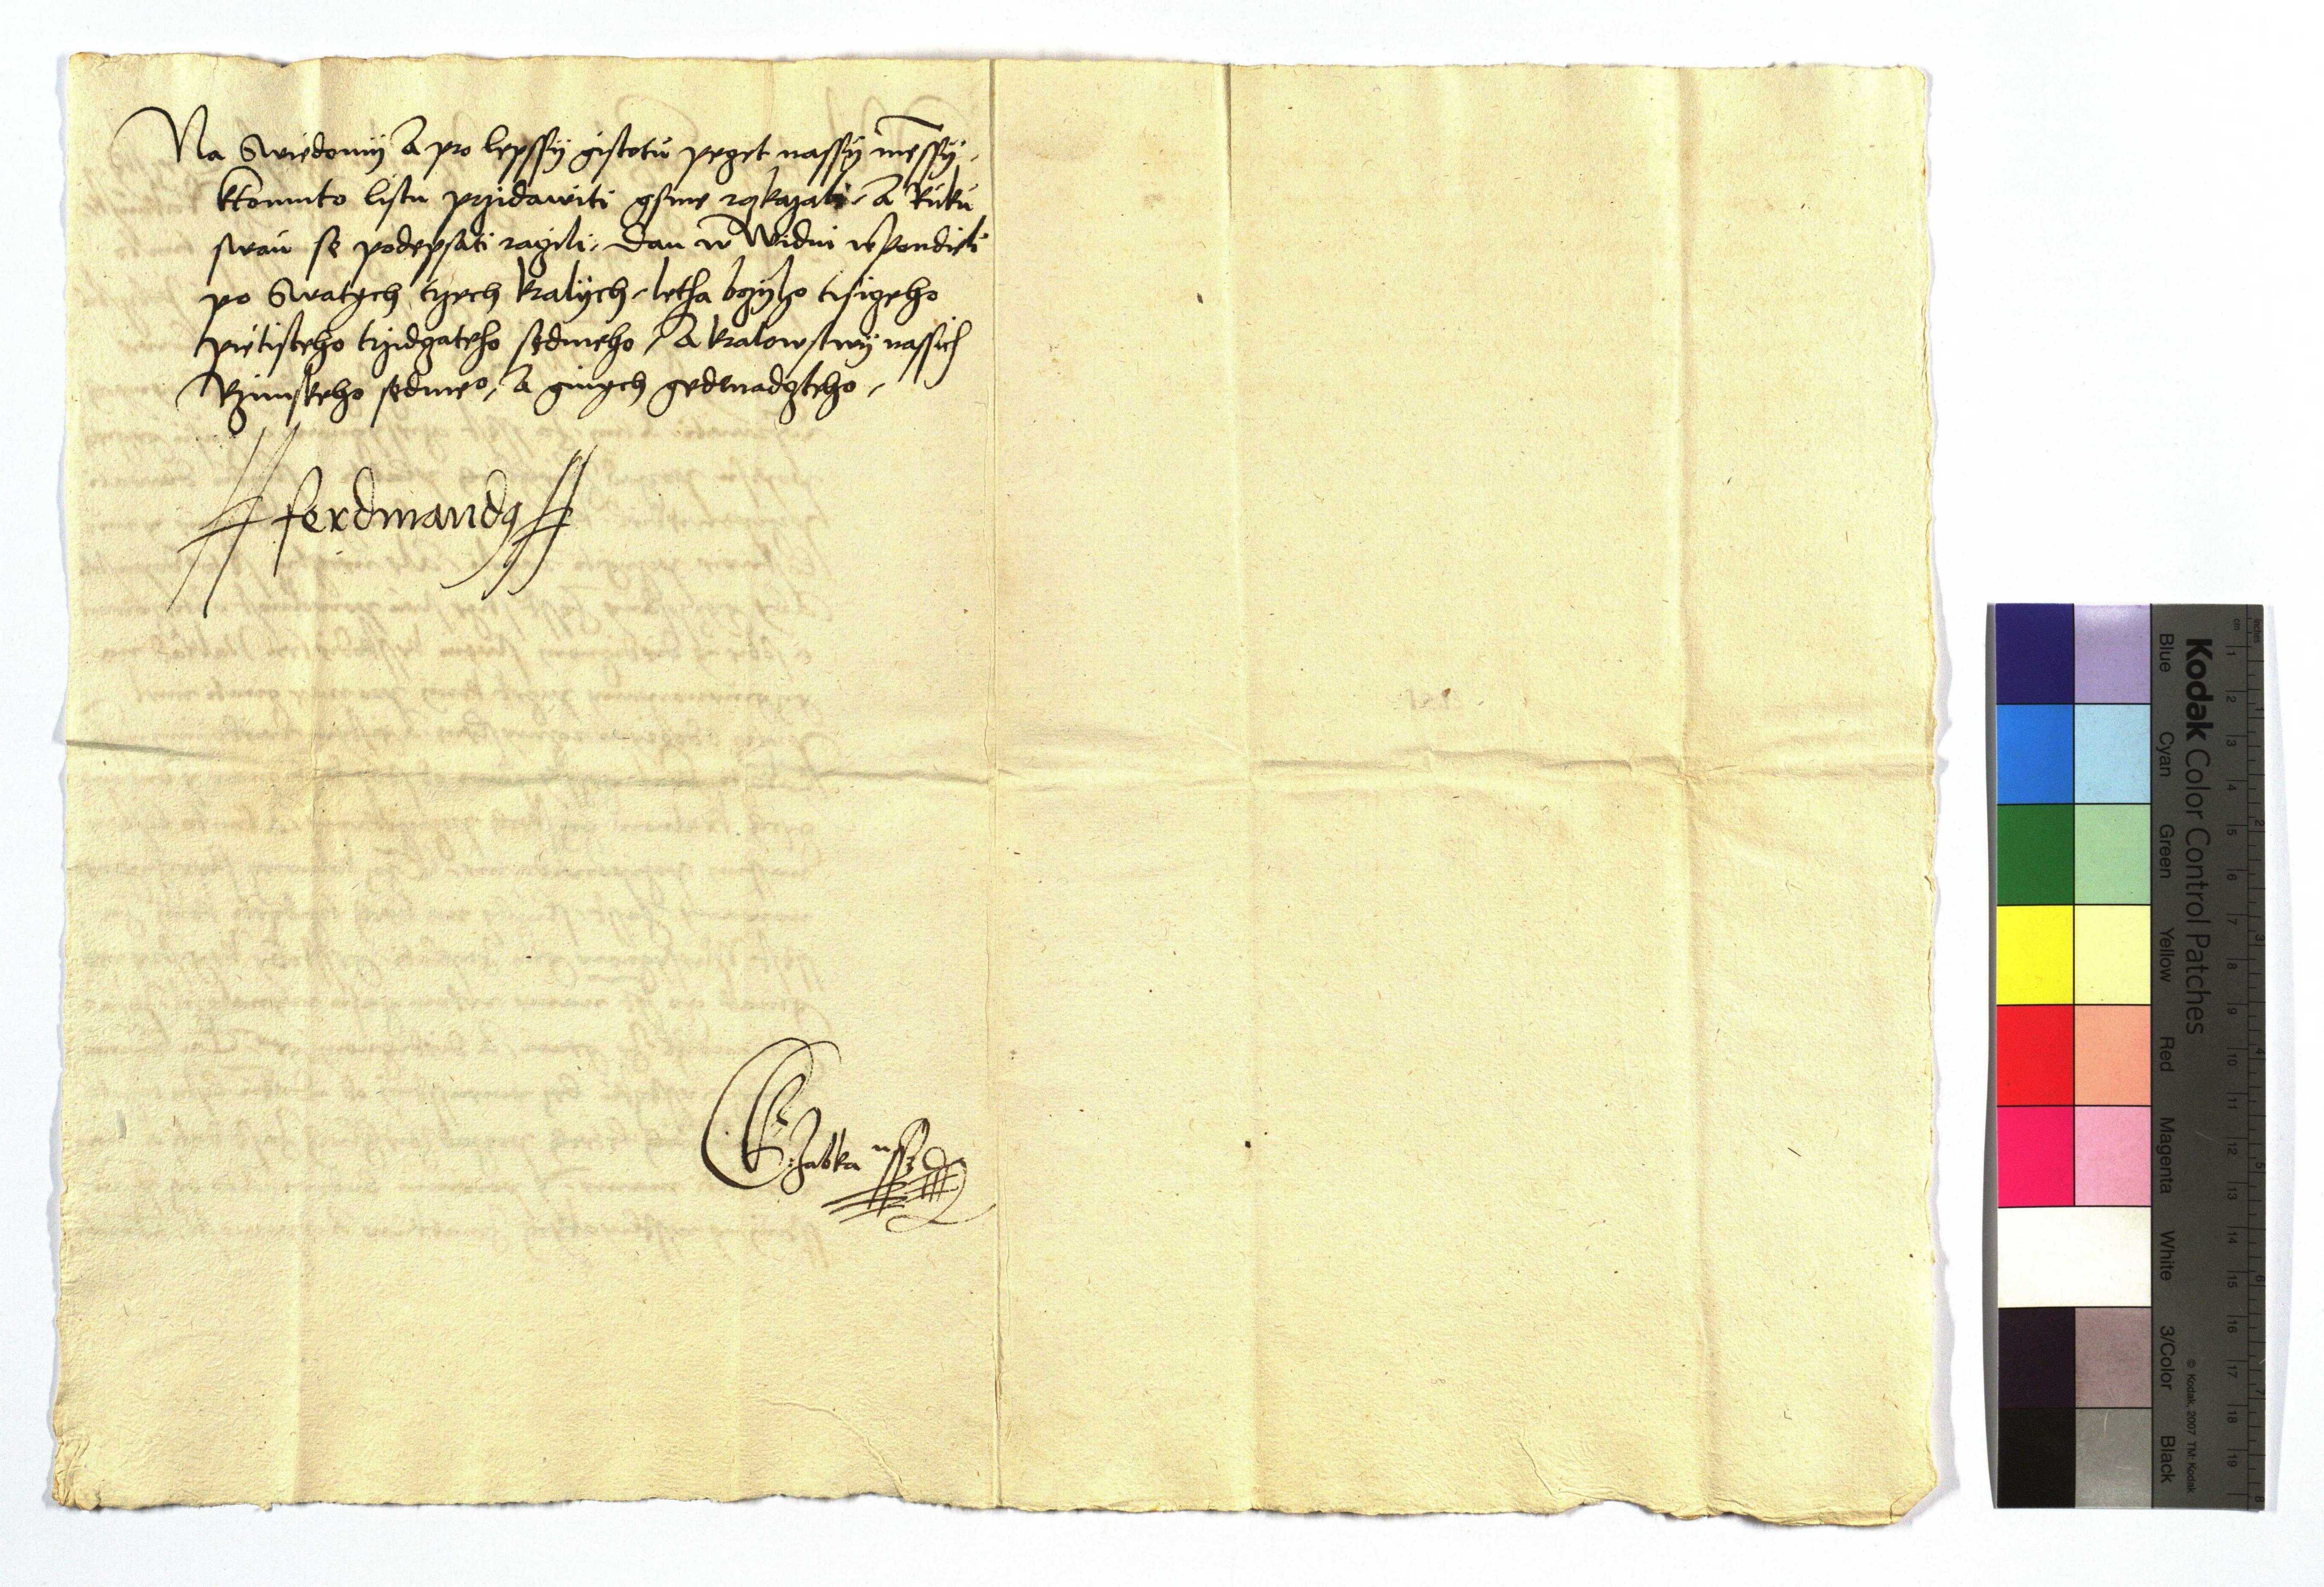 Na Swiedomij A pro lepssij gistotu peczet nassij menssij,
ktomuto listu przidawiti gsme rozkazali, A Ruku
swau se podepsati raczili, Dan w Widni w Pondieli
po Swatych trzech kralijch, letha bozijho tisiczeho
pietisteho trzidczateho sedmeho, A kralowstwij nassich
Rzimskeho sedmeo, A ginych gedenadczteho,
Ferdinandus
Kodak Color Control Patches
Blue Cyan Green Yellow Red Magenta White 3/Color Black
© Kodak, 2007 TM: Kodak
inches
cm
1 2 3 4 5 6 7 8 9 10 11 12 13 14 15 16 17 18 19
1 2 3 4 5 6 7 8